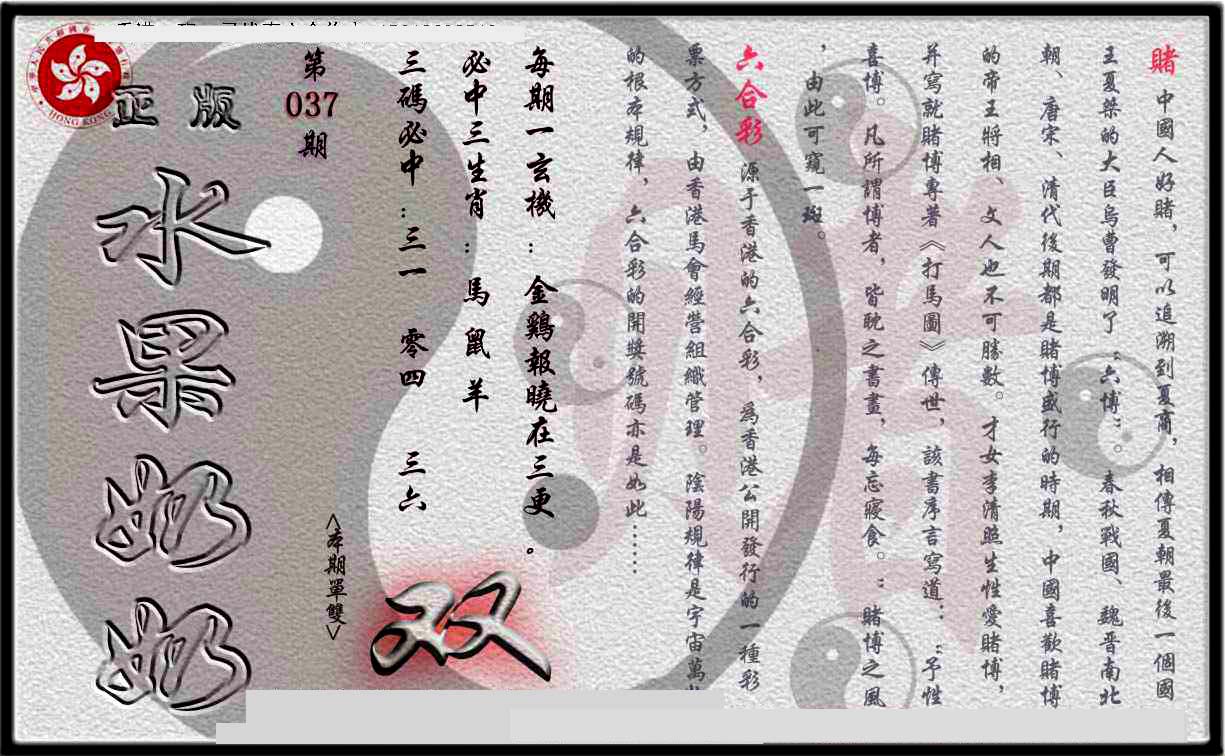 賭 中國人好賭，可以追溯到夏商，相傳夏朝最後一個國
王夏桀的大臣烏曹發明了“六博”。春秋戰國、魏晋南北
朝、唐宋、清代後期都是賭博盛行的時期，中國喜歡賭博
的帝王將相、文人也不可勝數。才女李清照生性愛賭博，
并寫就賭博專著《打馬圖》傳世，該書序言寫道：“予性
喜博。凡所謂博者，皆耽之書畫，每忘寢食。”賭博之風
，由此可窺一斑。
六合彩 源于香港的六合彩，爲香港公開發行的一種彩
票方式，由香港馬會經營組織管理。陰陽規律是宇宙萬
的根本規律，六合彩的開獎號碼亦是如此……
每期一玄機：金鷄報曉在三更。
必中三生肖：馬鼠羊
三碼必中：三一 零四 三六
第037期
<本期單雙>
双
正版
水果奶奶
HONG KONG